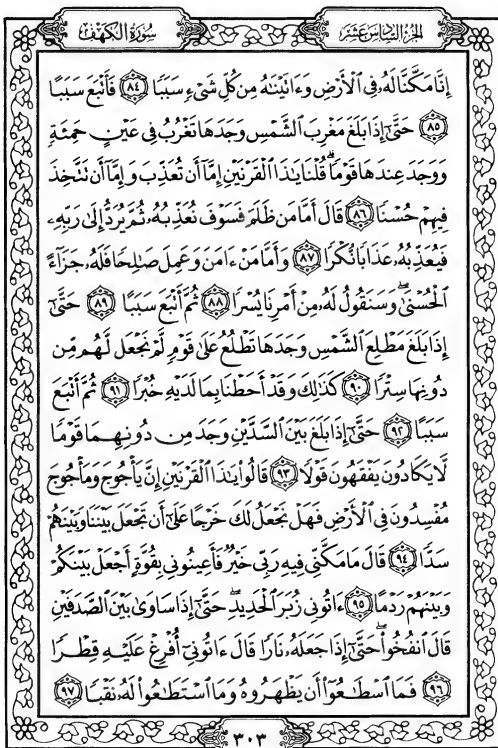 الجُزْءُ السَّادِسَ عَشَرَ
سُورَةُ الكَهْفِ
إِنَّا مَكَّنَّا لَهُۥ فِى ٱلْأَرْضِ وَءَاتَيْنَٰهُ مِن كُلِّ شَىْءٍ سَبَبًا ٨٤ فَأَتْبَعَ سَبَبًا
٨٥ حَتَّىٰٓ إِذَا بَلَغَ مَغْرِبَ ٱلشَّمْسِ وَجَدَهَا تَغْرُبُ فِى عَيْنٍ حَمِئَةٍ
وَوَجَدَ عِندَهَا قَوْمًا ۗ قُلْنَا يَٰذَا ٱلْقَرْنَيْنِ إِمَّآ أَن تُعَذِّبَ وَإِمَّآ أَن تَتَّخِذَ
فِيهِمْ حُسْنًا ٨٦ قَالَ أَمَّا مَن ظَلَمَ فَسَوْفَ نُعَذِّبُهُۥ ثُمَّ يُرَدُّ إِلَىٰ رَبِّهِۦ
فَيُعَذِّبُهُۥ عَذَابًا نُّكْرًا ٨٧ وَأَمَّا مَنْ ءَامَنَ وَعَمِلَ صَٰلِحًا فَلَهُۥ جَزَآءً
ٱلْحُسْنَىٰ ۖ وَسَنَقُولُ لَهُۥ مِنْ أَمْرِنَا يُسْرًا ٨٨ ثُمَّ أَتْبَعَ سَبَبًا ٨٩ حَتَّىٰٓ
إِذَا بَلَغَ مَطْلِعَ ٱلشَّمْسِ وَجَدَهَا تَطْلُعُ عَلَىٰ قَوْمٍ لَّمْ نَجْعَل لَّهُم مِّن
دُونِهَا سِتْرًا ٩٠ كَذَٰلِكَ وَقَدْ أَحَطْنَا بِمَا لَدَيْهِ خُبْرًا ٩١ ثُمَّ أَتْبَعَ
سَبَبًا ٩٢ حَتَّىٰٓ إِذَا بَلَغَ بَيْنَ ٱلسَّدَّيْنِ وَجَدَ مِن دُونِهِمَا قَوْمًا
لَّا يَكَادُونَ يَفْقَهُونَ قَوْلًا ٩٣ قَالُوا۟ يَٰذَا ٱلْقَرْنَيْنِ إِنَّ يَأْجُوجَ وَمَأْجُوجَ
مُفْسِدُونَ فِى ٱلْأَرْضِ فَهَلْ نَجْعَلُ لَكَ خَرْجًا عَلَىٰٓ أَن تَجْعَلَ بَيْنَنَا وَبَيْنَهُمْ
سَدًّا ٩٤ قَالَ مَا مَكَّنِّى فِيهِ رَبِّى خَيْرٌ فَأَعِينُونِى بِقُوَّةٍ أَجْعَلْ بَيْنَكُمْ
وَبَيْنَهُمْ رَدْمًا ٩٥ ءَاتُونِى زُبَرَ ٱلْحَدِيدِ ۖ حَتَّىٰٓ إِذَا سَاوَىٰ بَيْنَ ٱلصَّدَفَيْنِ
قَالَ ٱنفُخُوا۟ ۖ حَتَّىٰٓ إِذَا جَعَلَهُۥ نَارًا قَالَ ءَاتُونِىٓ أُفْرِغْ عَلَيْهِ قِطْرًا
٩٦ فَمَا ٱسْطَٰعُوٓا۟ أَن يَظْهَرُوهُ وَمَا ٱسْتَطَٰعُوا۟ لَهُۥ نَقْبًا ٩٧
٣٠٣